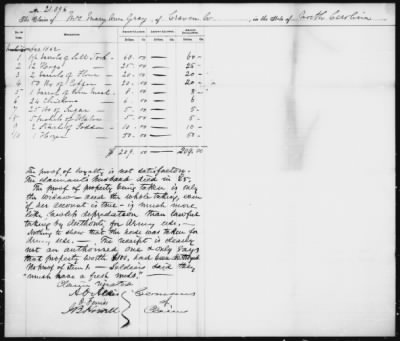 No. 21.896
The Claim of Mrs Mary Ann Gray, of Craven Co, in the State of North Carolina
1 barrels of Salt Pork 60.00 60-
2 12 Hogs 25.00 25-
3 2 barrels of Flour 20.00 20-
4 50 lbs of Coffee 20.00 20-
5 1 barrel of Corn Meal 8.00 8-
6 24 Chickens 6.00 6
7 25 lbs of Sugar 5.00 5-
8 5 bushels of 5.00 5-
9 2 Fodder 10.00 10-
10 1 Horse 50.00 50-
$209.00 209.00
The proof of loyalty is not satisfactory.
The claimants husband died in 65.
The proof of property being taken is only
the widow - and the whole taking, even
if her account is true - is much more
like depredation than lawful
taking by authority for Army use. -
Nothing to show that the horse was taken for
Army use. - The receipt is clearly
not an authorized one & only says
that property worth $100, had been destroyed
No proof of item 1. - Soldiers said they
"must have a fresh "
Claim rejected
A O Aldis
O Ferriss
J B Howell
Commrs
of
Claims